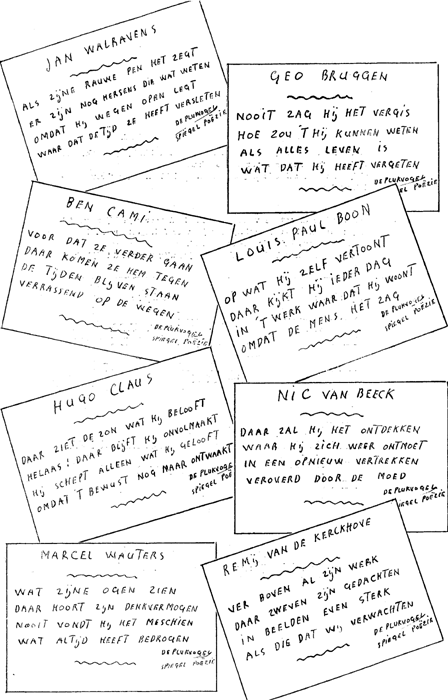 JAN WALRAVENS
ALS ZIJNE RAUWE PEN HET ZEGT
ER ZIJN NOG HERSENS DIR WAT WETEN
OMDAT HIJ WEGEN OPEN LEGT
WAAR DAT DE TIJD ZE HEEFT VERSLETEN
DE PLURVOGEL
SPIEGEL POËZIE
GEO BRUGGEN
NOOIT ZAG HIJ HET VERGIS
HOE ZOU 'T HIJ KUNNEN WETEN
ALS ALLES LEVEN IS
WAT DAT HIJ HEEFT VERGETEN
DE PLURVOGEL
SPIEGEL POËZIE
BEN CAMI
VOOR DAT ZE VERDER GAAN
DAAR KOMEN ZE HEM TEGEN
DE TIJDEN BLIJVEN STAAN
VERRASSEND OP DE WEGEN
DE PLURVOGEL
SPIEGEL POËZIE
LOUIS PAUL BOON
OP WAT HIJ ZELF VERTOONT
DAAR KIJKT HIJ IEDER DAG
IN 'T WERK WAAR DAT HIJ WOONT
OMDAT DE MENS HET ZAG
DE PLURVOGEL
SPIEGEL POËZIE
HUGO CLAUS
DAAR ZIET DE ZON WAT HIJ BELOOFT
HELAAS! DAAR BLIJFT HIJ ONVOLMAAKT
HIJ SCHEPT ALLEEN WAT HIJ GELOOFT
OMDAT 'T BEWUST NOG MAAR ONTWAAKT
DE PLURVOGEL
SPIEGEL POËZIE
NIC VAN BEECK
DAAR ZAL HIJ HET ONTDEKKEN
WAAR HIJ ZICH WEER ONTMOET
IN EEN OPNIEUW VERTREKKEN
VEROVERD DOOR DE MOED
DE PLURVOGEL
SPIEGEL POËZIE
MARCEL WAUTERS
WAT ZIJNE OGEN ZIEN
DAAR HOORT ZIJN DENKVERMOGEN
NOOIT VONDT HIJ HET MESCHIEN
WAT ALTIJD HEEFT BEDROGEN
DE PLURVOGEL
SPIEGEL POËZIE
REMIJ VAN DE KERCKHOVE
VER BOVEN AL ZIJN WERK
DAAR ZWEVEN ZIJN GEDACHTEN
IN BEELDEN EVEN STERK
ALS DIE DAT WIJ VERWACHTEN
DE PLURVOGEL
SPIEGEL POËZIE